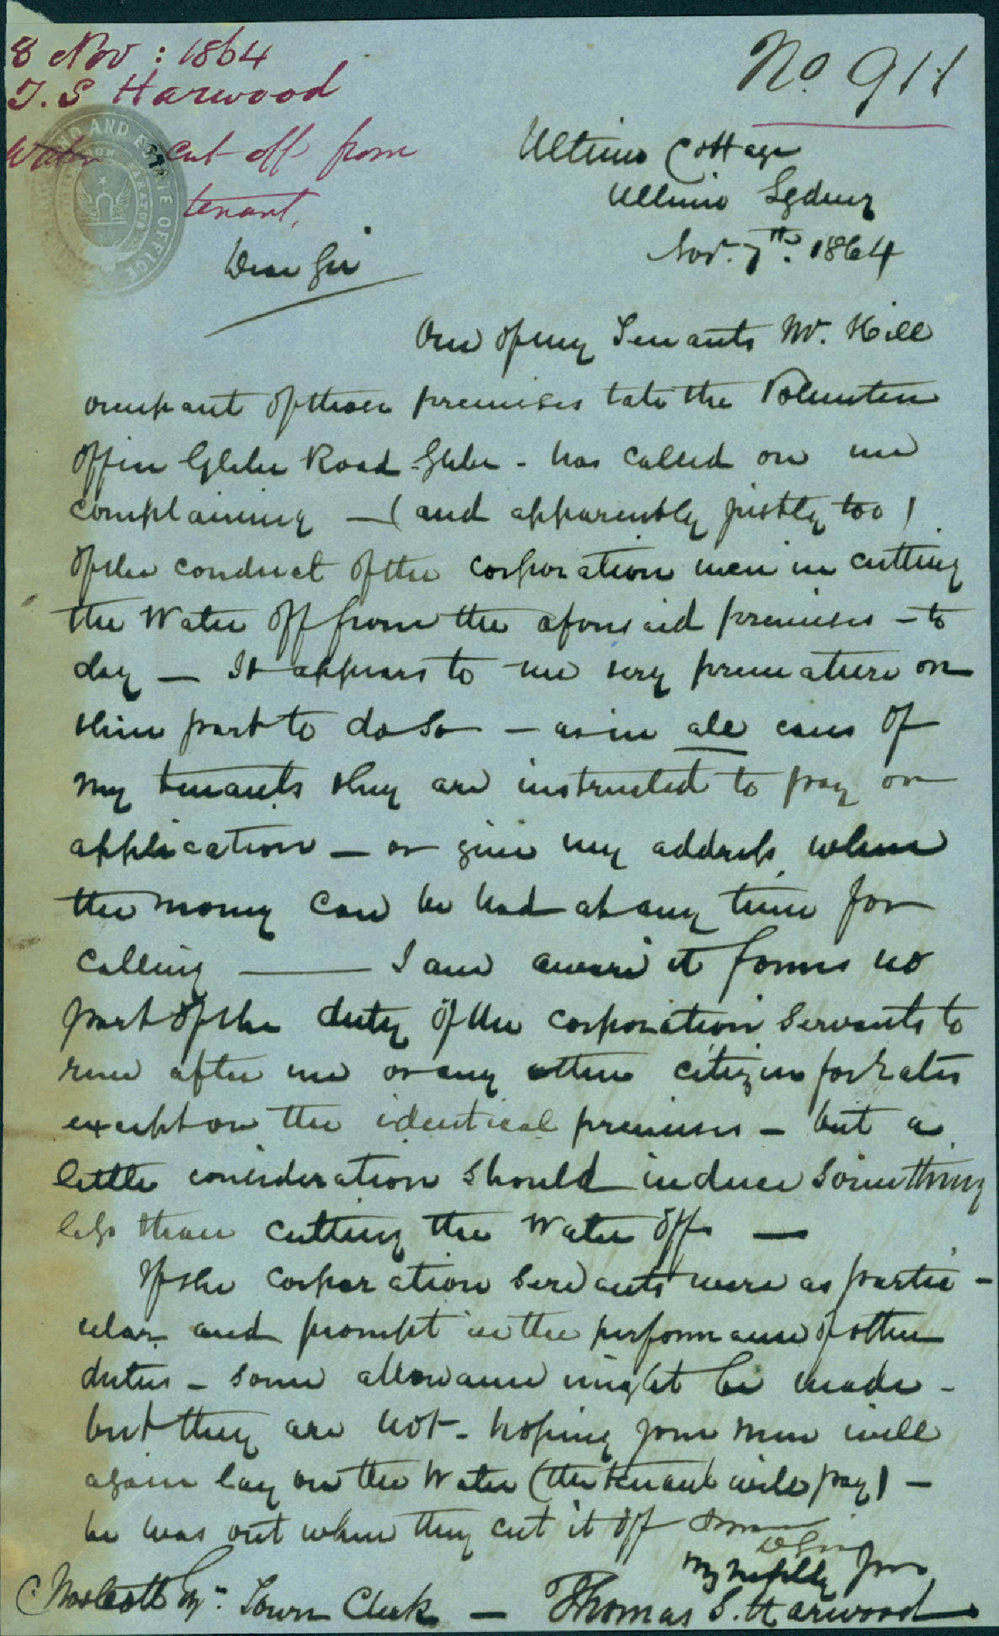 8 Nov : 1864
T. S Harwood
Water cut off from
tenant.
No 911
Ultimo Cottage
Ultimo Sydney
Nov. 7th. 1864
Dear Sir
One of my Tenants Mr. Hill
occupant of those premises late the Volunteer
Office Glebe Road - Glebe - has called on me
complaining - (and apparently justly too)
of the conduct of the corporation men in cutting
the Water off from the aforesaid premises - to
day - It appears to me very premature on
their part to do so - as in all cases of
my tenants they are instructed to pay on
application - or give my address where
the money can be had at any time for
calling — I am aware it forms no
part of the duty of the corporation Servants to
run after me or any other citizen for rates
except on the identical premises - but a
little consideration should induce something
less than cutting the Water off —
If the corporation Servants were as partic -
ular and prompt in the performance of other
duties - some allowance might be made -
but they are not - hoping your men will
again lay on the Water (the tenant will pay) -
he was out when they cut it off
Yours
C Woolcott Esqr. Town Clerk — Thomas S. Harwood
LAND AND ESTATE OFFICE